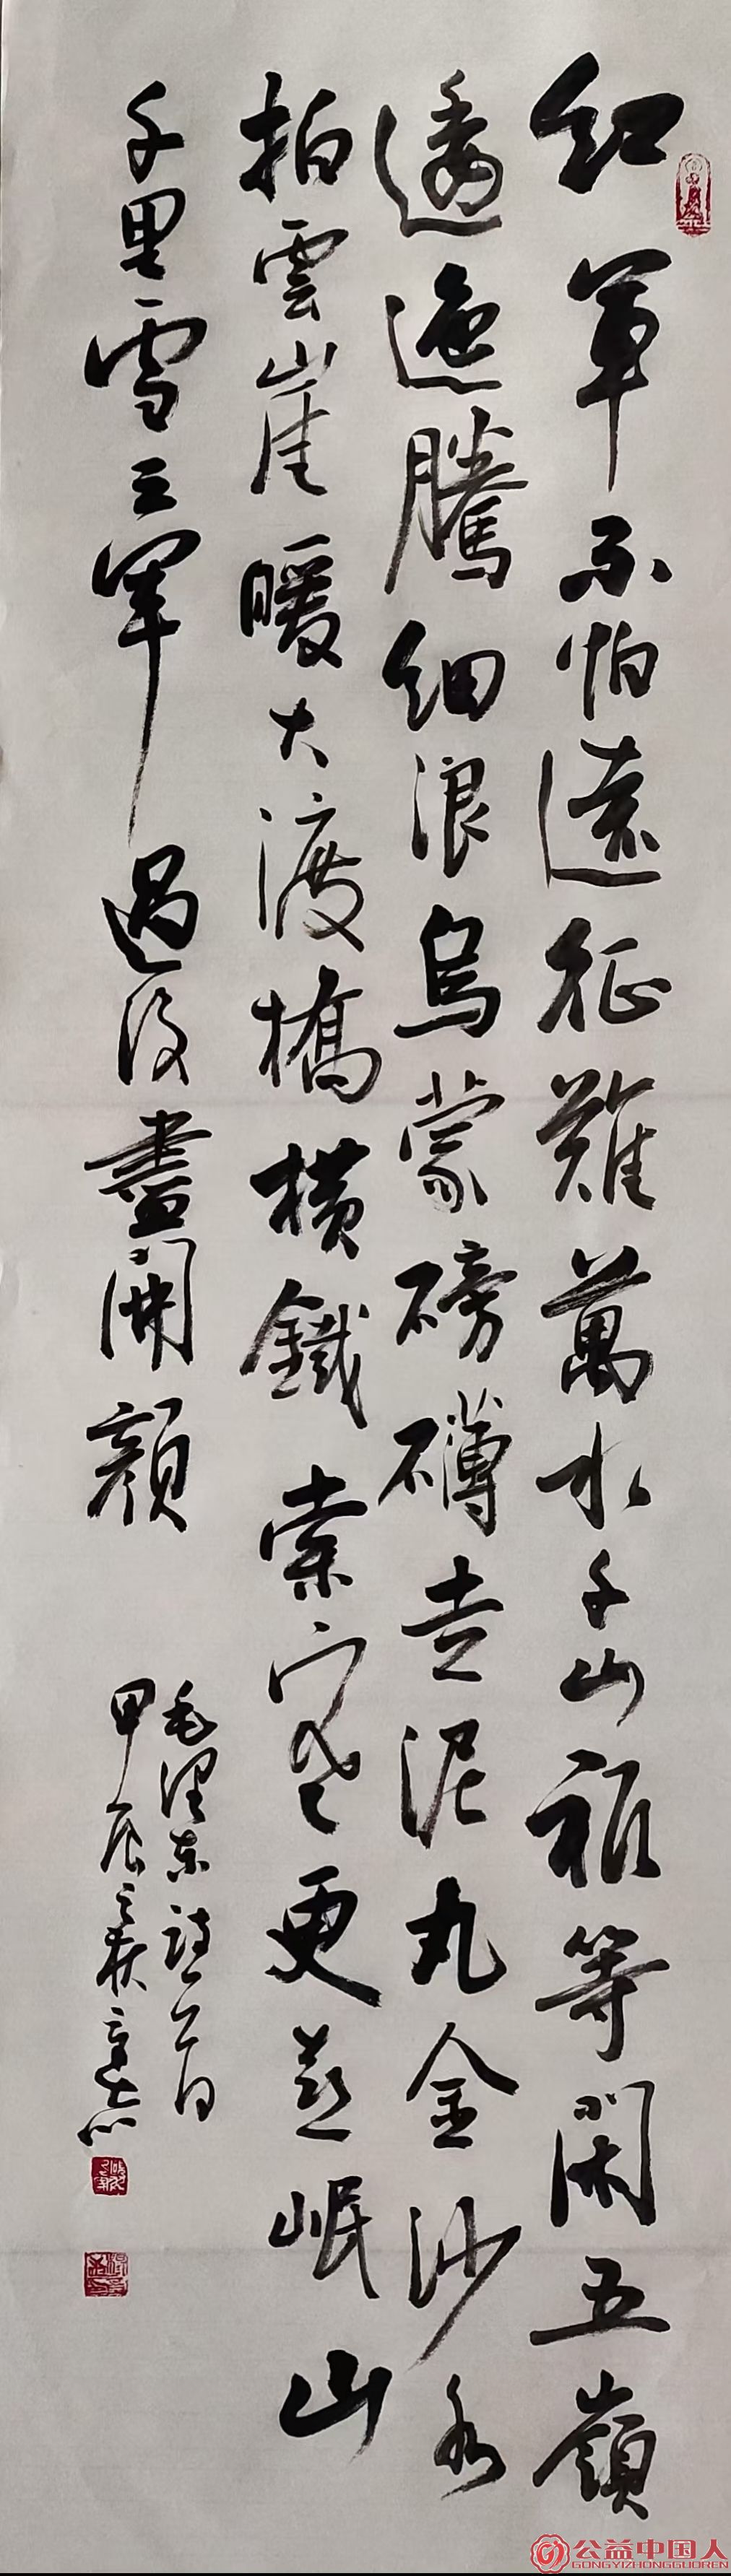 紅軍不怕遠征難萬水千山祇等閑五嶺
逶迤騰細浪烏蒙磅礴走泥丸金沙水
拍雲崖暖大渡橋橫鐵索寒更喜岷山
千里雪三軍過後盡開顏
毛澤東詩一首
甲辰之秋
公益中国人
GONGYIZHONGGUOREN